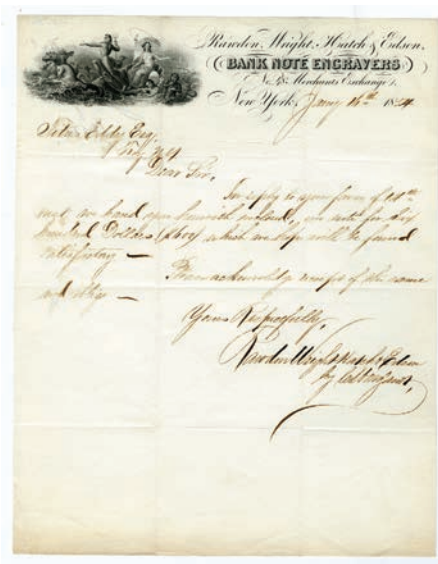 Rawdon, Wright, Hatch & Edson,
BANK NOTE ENGRAVERS
No. 48 Merchants Exchange,
New York, Jany 16th 18
Titus Eddy Esq.
Troy N.Y.
Dear Sir,
In reply to your favor of
we hand you herewith our note for Six
hundred Dollars ($600) which we hope will be found
satisfactory —
Please acknowledge receipt of the same
and oblige —
Yours Respectfully,
Rawdon Wright Hatch & Edson
by